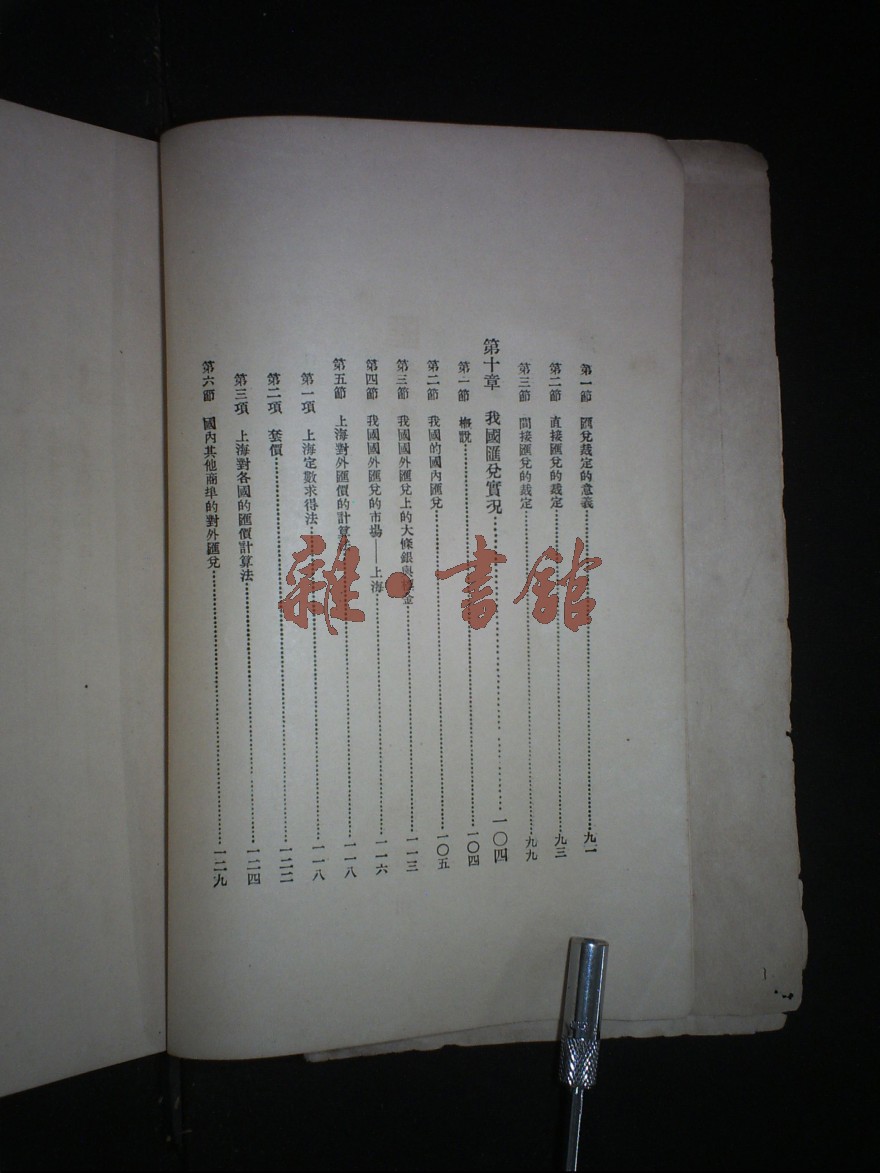 第一節　匯兌裁定的意義……九一
第二節　直接匯兌的裁定……九三
第三節　間接匯兌的裁定……九九
第十章　我國匯兌實况……一〇四
第一節　概說……一〇四
第二節　我國的國內匯兌……一〇五
第三節　我國國外匯兌上的大條銀與標金……一一三
第四節　我國國外匯兌的市場——上海……一一六
第五節　上海對外匯價的計算法……一一八
第一項　上海定數求得法……一一八
第二項　套價……一二二
第三項　上海對各國的匯價計算法……一二四
第六節　國內其他商埠的對外匯兌……一二九
雜·書館